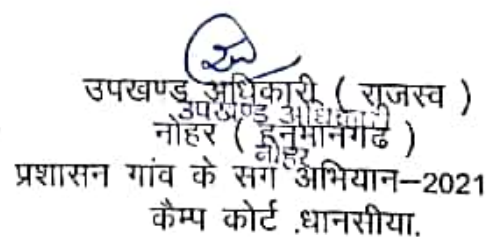 उपखण्ड अधिकारी ( राजस्व )
उपखण्ड अधिकारी
नोहर ( हनुमानगढ )
नोहर
प्रशासन गांव के संग अभियान–2021
कैम्प कोर्ट .धानसीया.